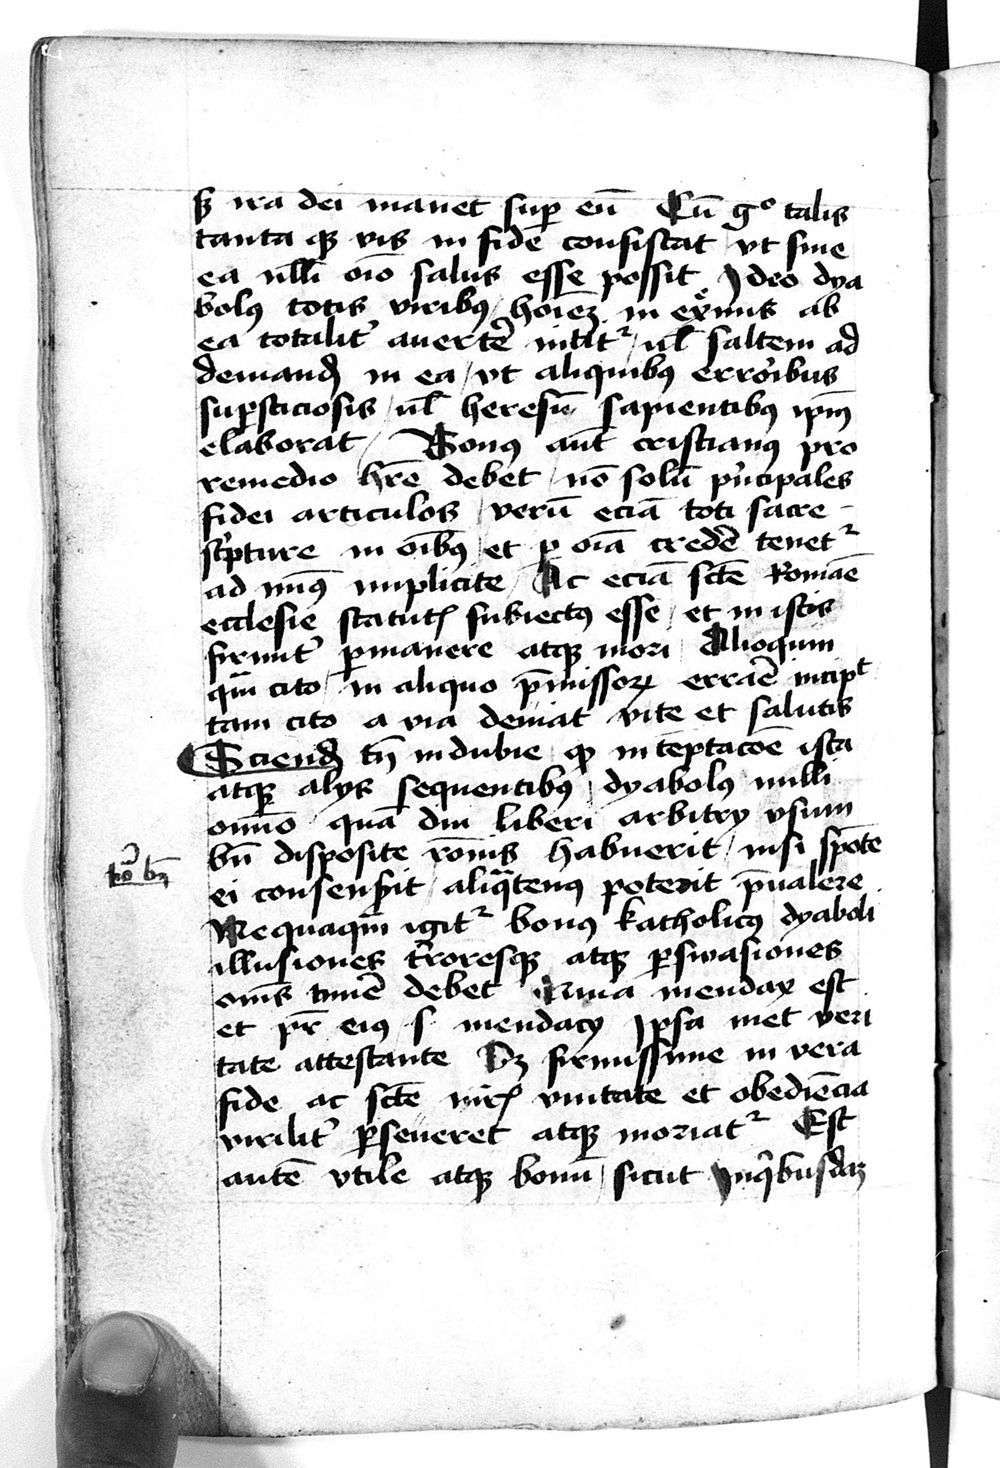 sꝫ ira dei manet suꝑ eū Cū gͦ talis
tanta qꝫ vis in fide consistat vt sine
ea nĺli oīo salus esse possit Ideo dya
bolꝰ totis viribꝰ hoīeꝫ in exͤmis ab
ea totalitʼ auertē nitit᷑ ul̄ saltem ad
deuiandꝭ in ea vt aliquibꝰ erroribus
suꝑsticiosis ul̄ heresim̄ sapientibꝰ ip̄m
elaborat Bonꝰ aut̄ cristianꝰ pro
remedio hr̄e debet nō solū pͥncipales
fidei articulos verū eciā toti sacre
scͥpture in oībꝰ et ꝑ oīa credē tenet᷑
ad minꝰ implicite Ac eciā scē Romāe
ecclesie statutꝭ subiectꝰ esse et in istis
firmitʼ ꝑmanere atqꝫ mori Alioquin
qm̄ cito in aliquo p̄missoꝝ errare incipt
tam cito a via deuiat vite et salutis
Sciendꝭ tn̄ indubie ꝙ in temptacōe ista
atqꝫ alijs sequentibꝰ dyabolꝰ nulli
omīo quā diu liberi arbitrij vsum
bn̄ disposite rōnis habuerit nisi spōte
ei consenserit aliqͣtenꝰ poterit p̄ualere
no bn̄
Nequaqm̄ igit᷑ bonus katholicꝰ dyaboli
illusiones tʼroresqꝫ atqꝫ ꝑswasiones
om̄s timē debet mendax est
et pr̄ eiꝰ s mendacij Ipsa met veri
tate attestante Sꝫ firmissime in vera
fide ac scē mr̄ꝭ vnitate et obediēcia
virilitʼ ꝑseueret atqꝫ moriat᷑ Est
autē vtile atqꝫ bonū sicut Inqͥbusdaꝫ